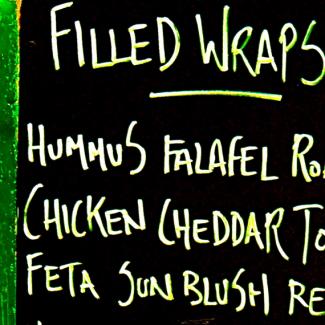 FILLED WRAPS
HUMMUS FALAFEL RO
CHICKEN CHEDDAR TO
FETA SUN BLUSH RE